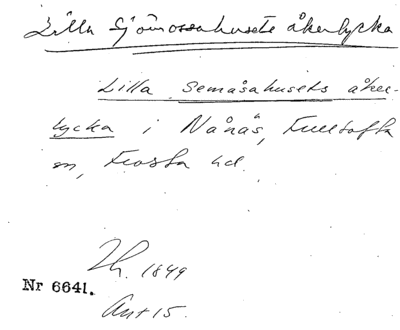 Lilla Sjömossahusets åkerlycka
Lilla Semåsahusets åker-
lycka i Nånäs, Fulltofta
sn, Frosta hd.
Lh. 1849
Nr 6641.
Ant 15.